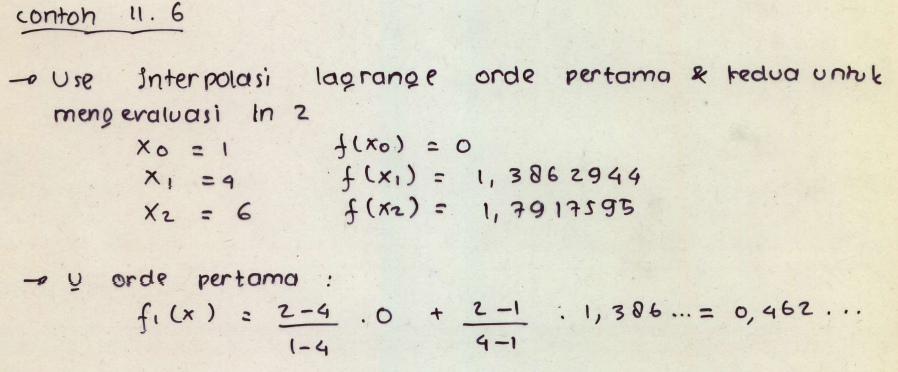 contoh 11.6
→ Use Interpolasi lagrange orde pertama & kedua untuk
mengevaluasi ln 2
x0 = 1 f(x0) = 0
x1 = 4 f(x1) = 1,3862944
x2 = 6 f(x2) = 1,7917595
→ U orde pertama :
f1(x) = (2-4)/(1-4) . 0 + (2-1)/(4-1) : 1,386... = 0,462...